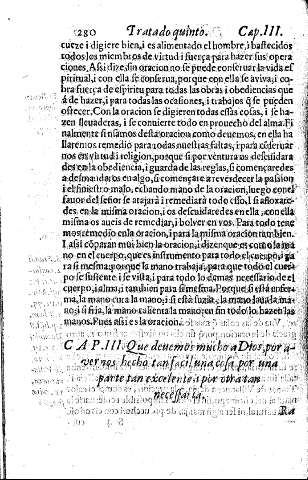 280 Tratado quinto. Cap.III.
cueze i digiere bien, i es alimentado el hombre, i bastecidos
todos los miembros de virtud i fuerça para hazer sus opera
ciones. Assi dize, sin oracion no se puede conseruar la vida es
piritual, i con ella se conserua, porque con ella se aviva, i co
bra fuerça de espiritu para todas las obras i obediencias que
â de hazer, i para todas las ocasiones, i trabajos q̃ se pueden
ofrecer. Con la oracion se digieren todas estas cosas, i se ha-
zen lleuaderas, i se conuierte todo en prouecho del alma. Fi
nalmente si usamos desta oracion como deuemos, en ella ha
llaremos remedio para todas nuestras faltas, i para cõseruar
nos en virtud i religion, porque si por ventura os descuidara
des en la obediencia, i guarda de las reglas, si començaredes
a desmandaros en algo, si començare a reverdecer la passion
i el siniestro malo, echando mano de la oracion, luego con el
fauor del señor se atajarà i remediarà todo esso. I si afloxare
des en la misma oracion, i os descuidaredes en ella, con ella
misma os aueis de remediar, i bolver en vos. Para todo tene
mos remedio en la oracion, i para la misma oracion tambien.
I assi cõparan mui bien la oracion, i dizen que es como la ma
no en el cuerpo, que es instrumento para todo el cuerpo, i pa
ra si mesma: porque la mano trabaja, para que todo el cuer
po se sustente i se vista, i para todo lo demas necessario al
cuerpo, i alma, i tambien para si mesma. Porque si està enfer
ma, la mano cura la mano; i si està suzia, la mano laua la ma
no; i si fria, la mano calienta la mano; en fin todo lo hazen las
manos. Pues assi es la oracion.
CAP. III. Que deuemos mucho a Dios, por a
vernos hecho tan facil una cosa por una
parte tan excelente, i por otra tan
necessaria.
Ra